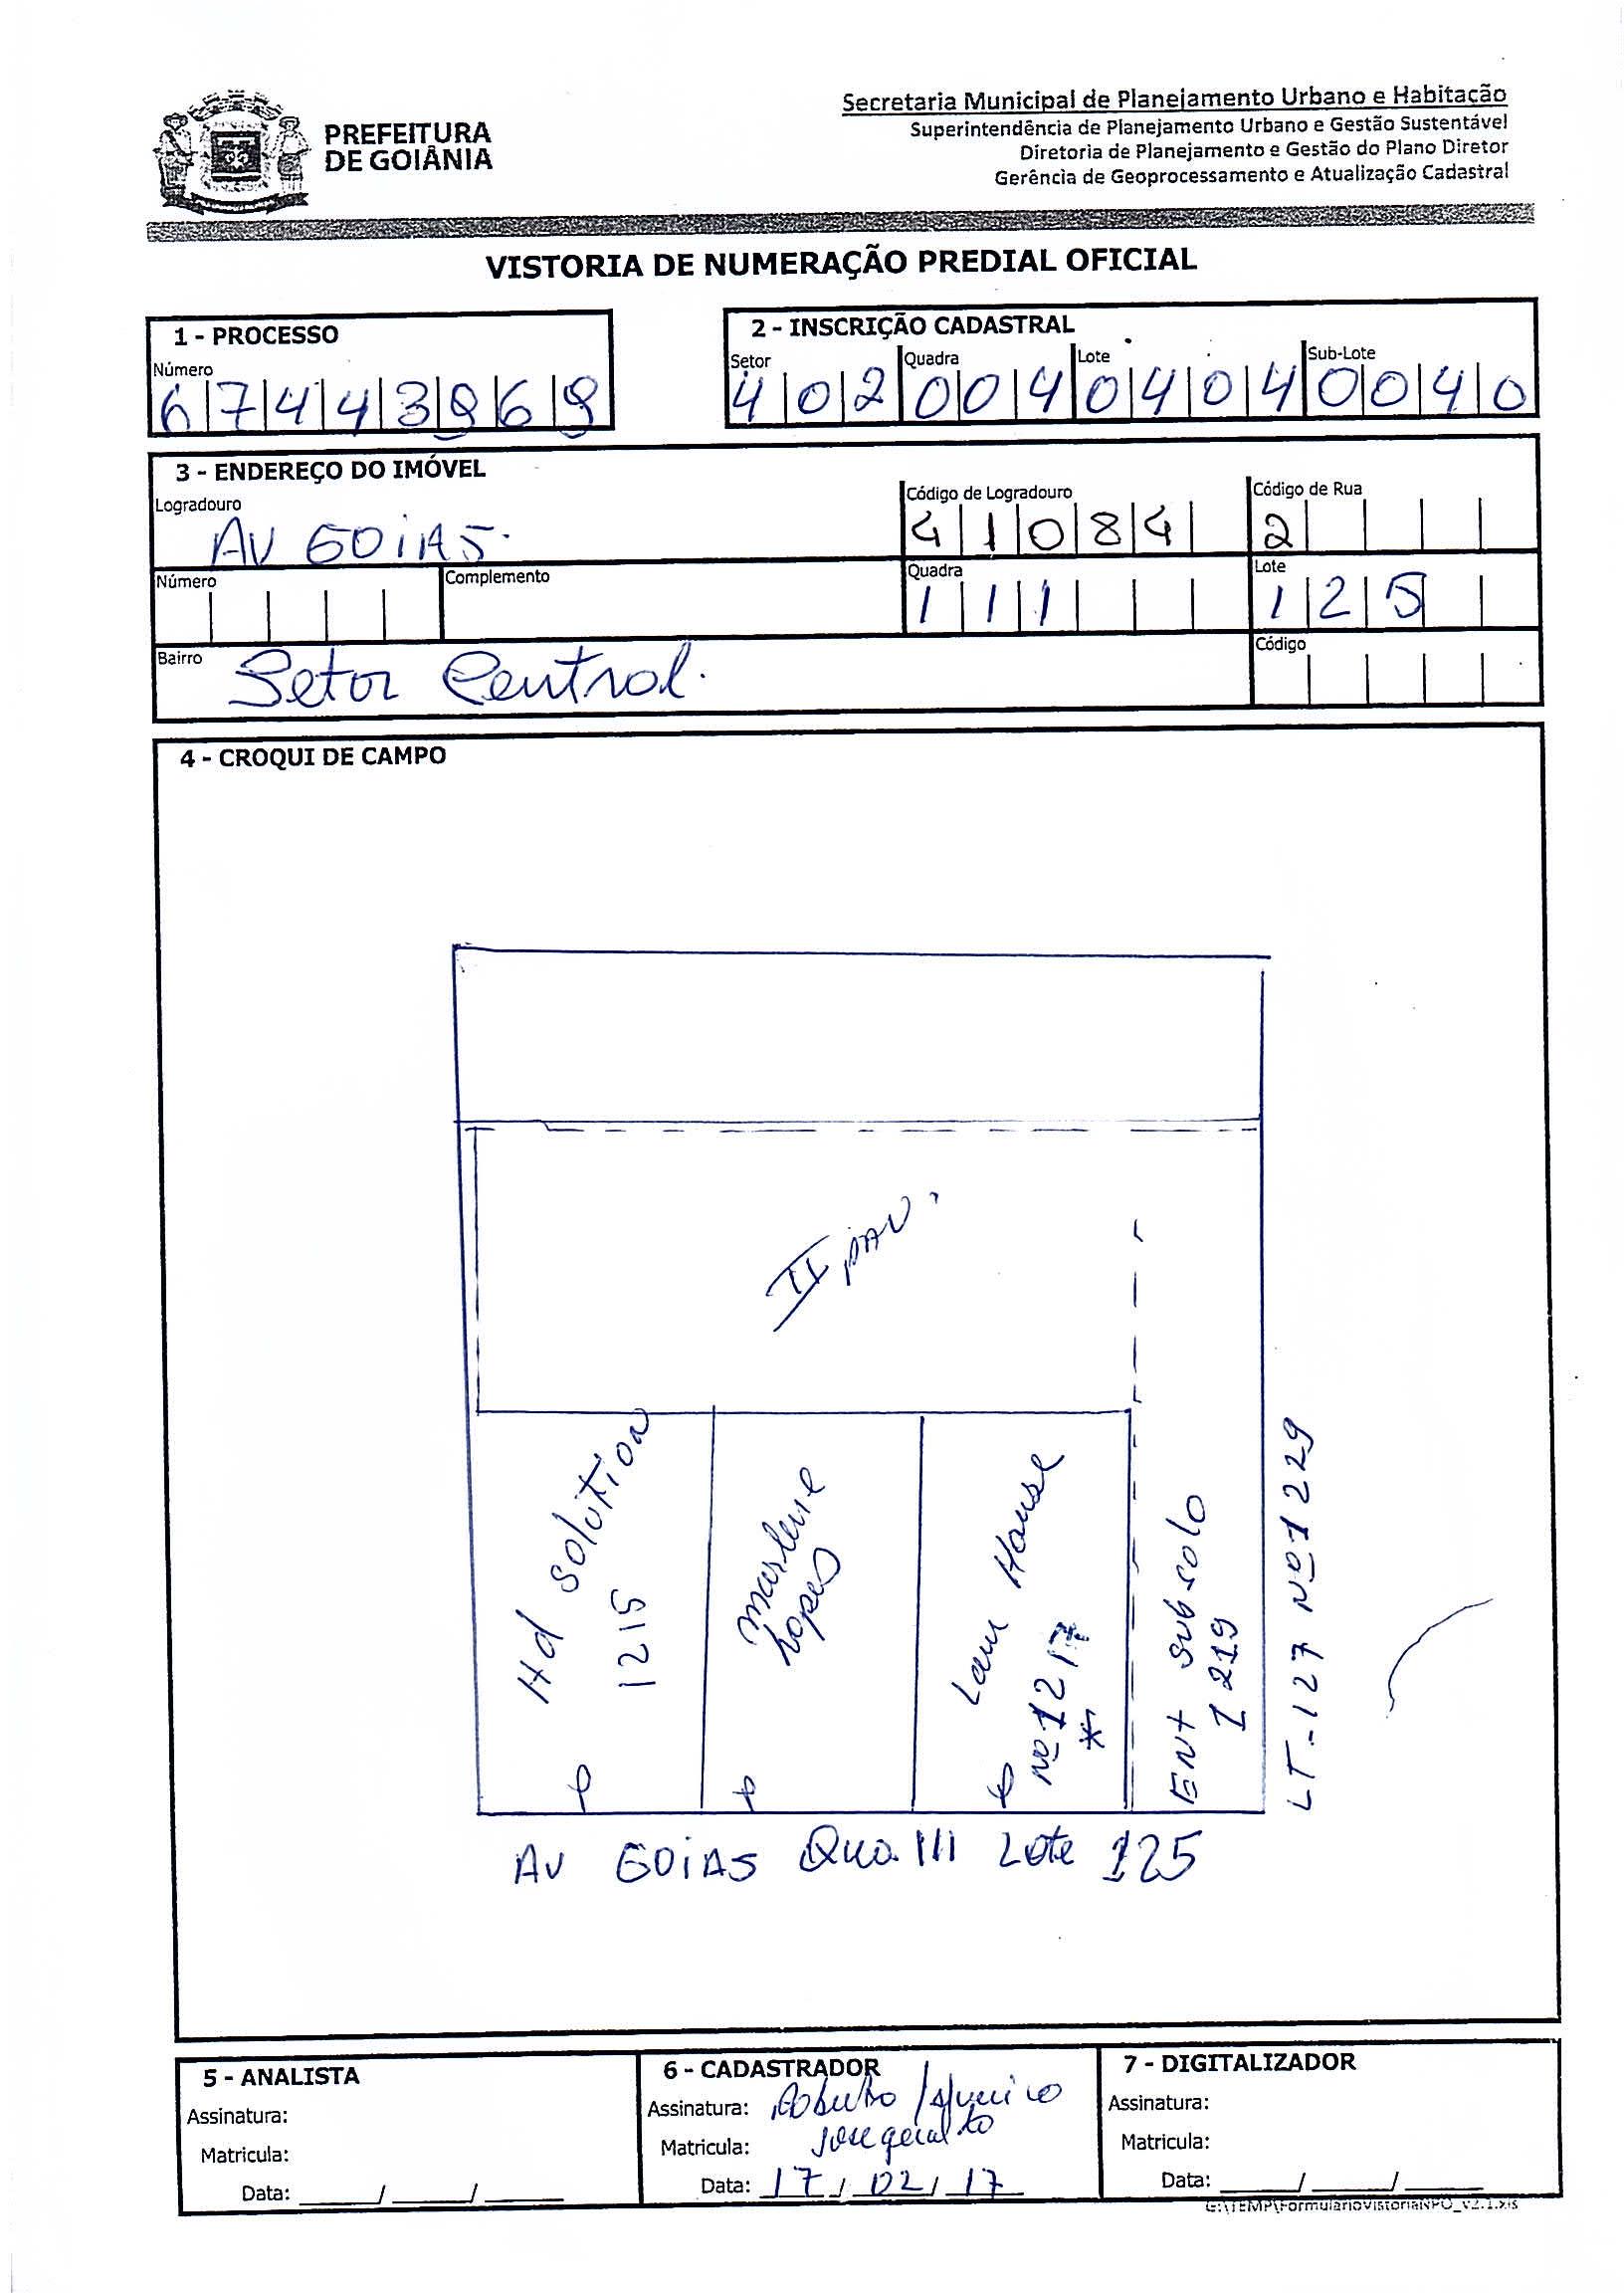 PREFEITURA
DE GOIÂNIA
Secretaria Municipal de Planejamento Urbano e Habitação
Superintendência de Planejamento Urbano e Gestão Sustentável
Diretoria de Planejamento e Gestão do Plano Diretor
Gerência de Geoprocessamento e Atualização Cadastral
VISTORIA DE NUMERAÇÃO PREDIAL OFICIAL
1 - PROCESSO
Número
67443969
2 - INSCRIÇÃO CADASTRAL
Setor Quadra Lote Sub-Lote
402 004 0404 0040
3 - ENDEREÇO DO IMÓVEL
Logradouro Código de Logradouro Código de Rua
AV GOiAS. 41084 2
Número Complemento Quadra Lote
111 125
Bairro Código
Setor Central.
4 - CROQUI DE CAMPO
II PAV.
Hd solution
1215
Marlene
Lopes
Lan House
Nº 1217
*
ENt subsolo
1219
LT-127 Nº 1229
AV GOiAS Qua. 111 Lote 125
5 - ANALISTA
Assinatura:
Matricula:
Data: ____/____/____
6 - CADASTRADOR
Assinatura: Roberto /
Jose geraldo
Matricula:
Data: 17/02/17
7 - DIGITALIZADOR
Assinatura:
Matricula:
Data: ____/____/____
G:\TEMP\FormularioVistoriaNPO_v2.1.xls